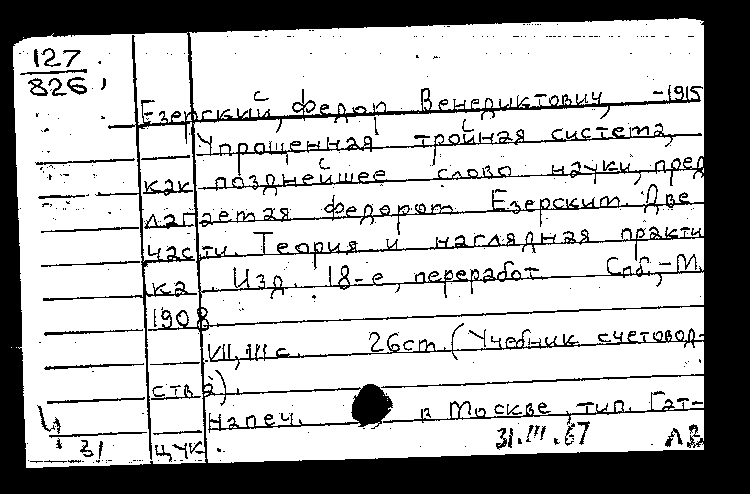 127
826,
Езерский, Федор Венедиктович, -1915
Упрощенная тройная система,
как позднейшее слово науки, пред
лагается Федором Езерским. Две
части. Теория и наглядная практи
ка. Изд. 18-е, переработ Спб.,-М.
1908
VII, 111 с. 26см. (Учебник счетовод-
ства).
Напеч. в Москве, тип. Гат-
31.III.67 ЛВ
31 цук.